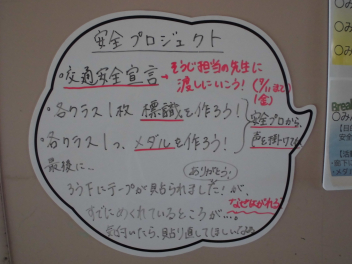 安全プロジェクト
・交通安全宣言→そうじ担当の先生に
渡しにいこう!(9/11まで)
(金)
・各クラス1枚 標識を作ろう!
安全プロから、
声を掛けてね
・各クラス1つ、メダルを作ろう!
最後に…
ありがとう!
ろう下にテープが貼られました!が、
すでにめくれているところが…。
なぜはがれる
気付いたら、貼り直してほしいなぁ